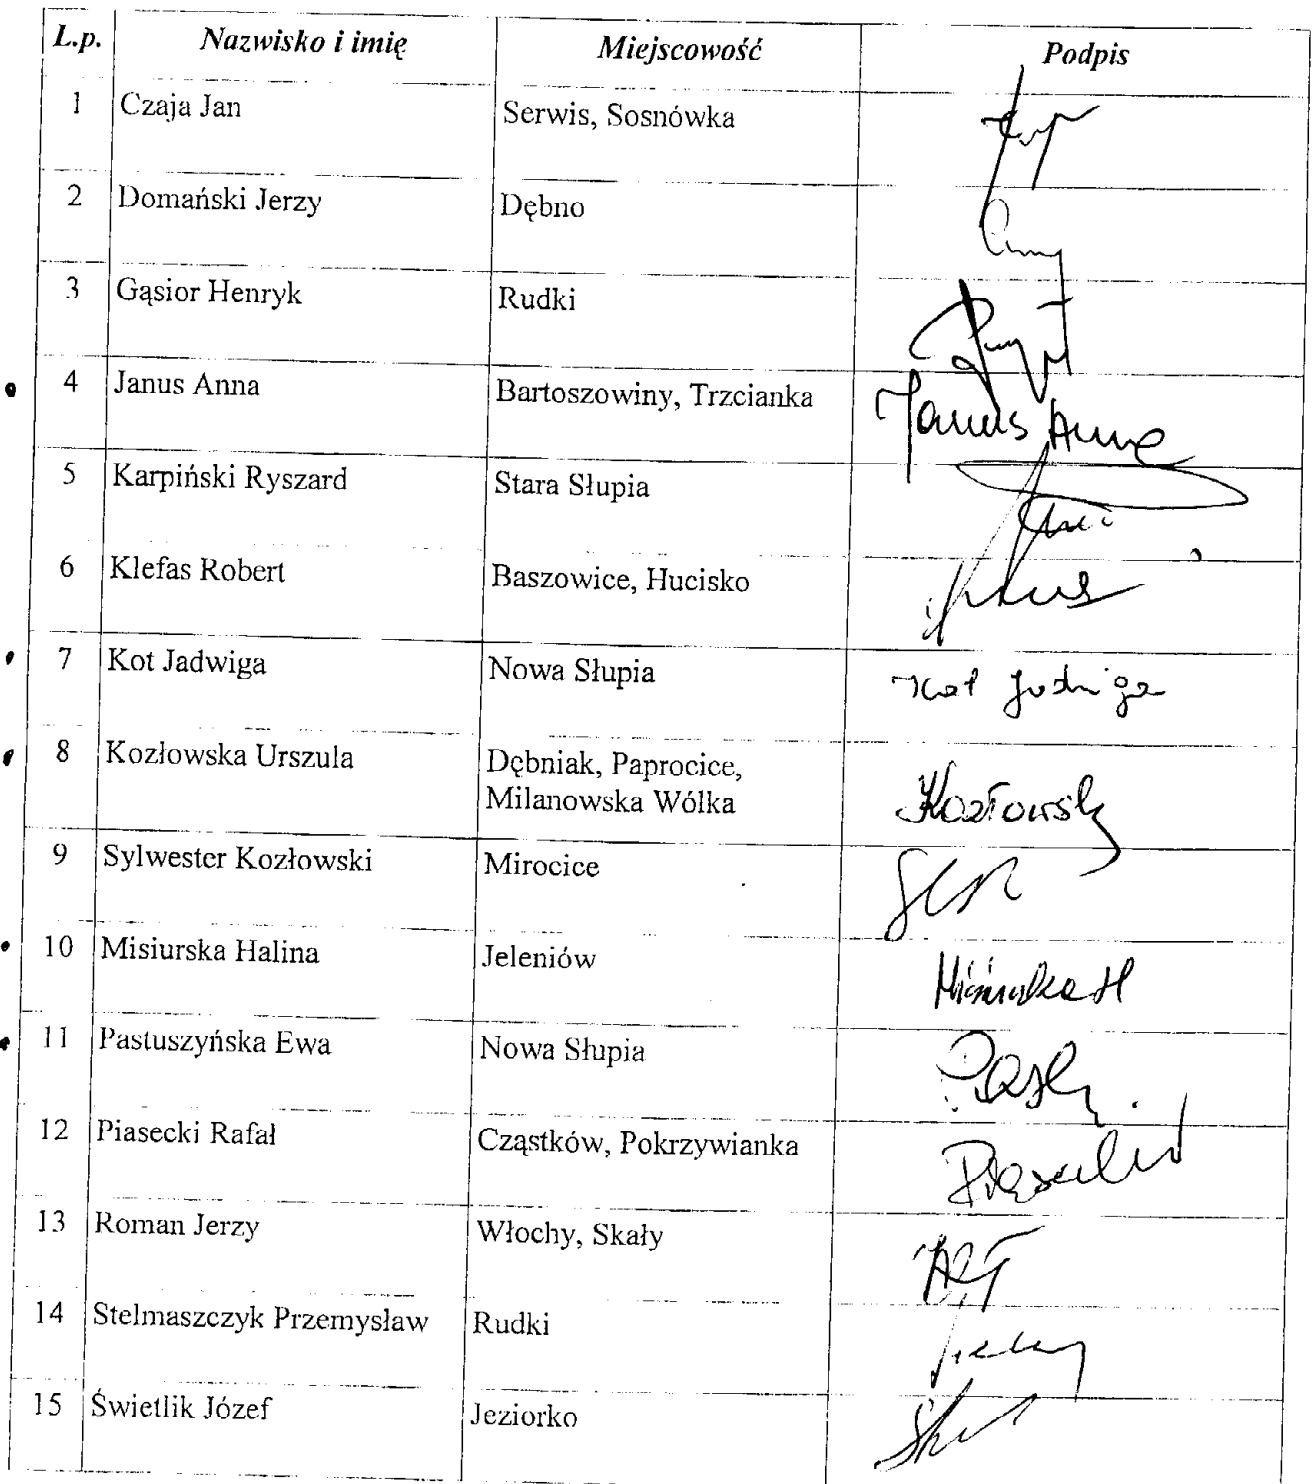 L.p. Nazwisko i imię Miejscowość Podpis
1 Czaja Jan Serwis, Sosnówka
2 Domański Jerzy Dębno
3 Gąsior Henryk Rudki
4 Janus Anna Bartoszowiny, Trzcianka Janus Anna
5 Karpiński Ryszard Stara Słupia
6 Klefas Robert Baszowice, Hucisko
7 Kot Jadwiga Nowa Słupia Kot Jadwiga
8 Kozłowska Urszula Dębniak, Paprocice,
Milanowska Wólka
9 Sylwester Kozłowski Mirocice
10 Misiurska Halina Jeleniów
11 Pastuszyńska Ewa Nowa Słupia
12 Piasecki Rafał Cząstków, Pokrzywianka
13 Roman Jerzy Włochy, Skały
14 Stelmaszczyk Przemysław Rudki
15 Świetlik Józef Jeziorko